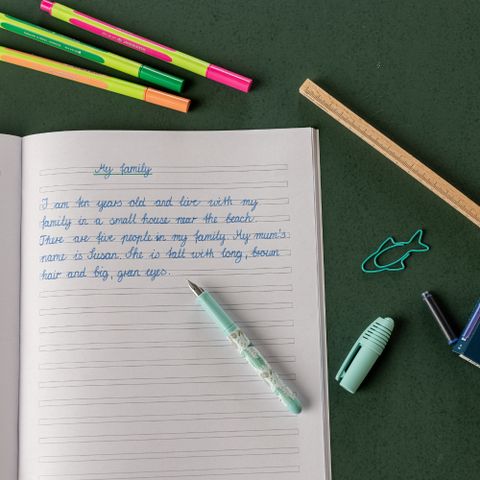 My family
I am ten years old and live with my
family in a small house near the beach.
There are five people in my family. My mum's
name is Susan. She is tall with long, brown
hair and big, green eyes.